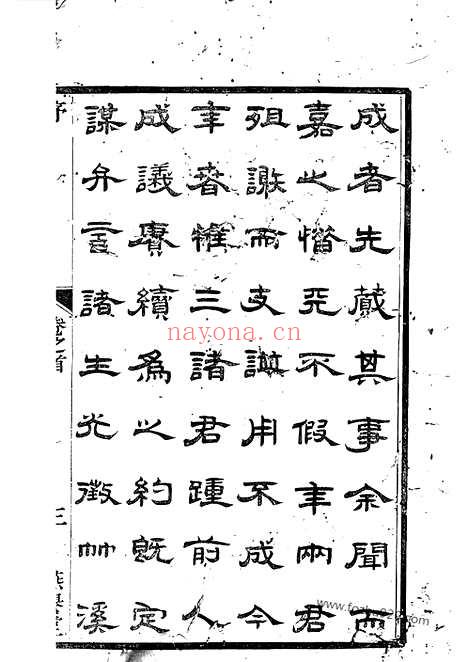 成者先蕆其事余聞而
嘉之惜天不假年兩君
殂謝而支譜用不成今
年春三諸君踵前人
成議賡續爲之約既定
謀弁言諸生光徵竹溪
序
卷之首
三
nayona.cn